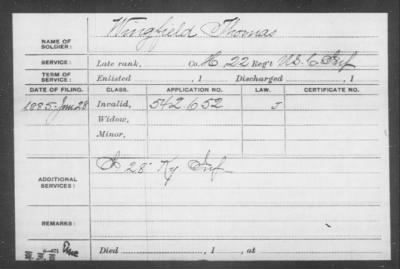 Wingfield Thomas
NAME OF SOLDIER:
SERVICE: Late rank, Co. H 22 Reg't U.S.C. Inf
TERM OF SERVICE: Enlisted , 1 Discharged , 1
DATE OF FILING. CLASS. APPLICATION NO. LAW. CERTIFICATE NO.
1885 28 Invalid, 542652 J
Widow,
Minor,
28 Ky Inf
ADDITIONAL SERVICES:
REMARKS:
Died , 1 , at